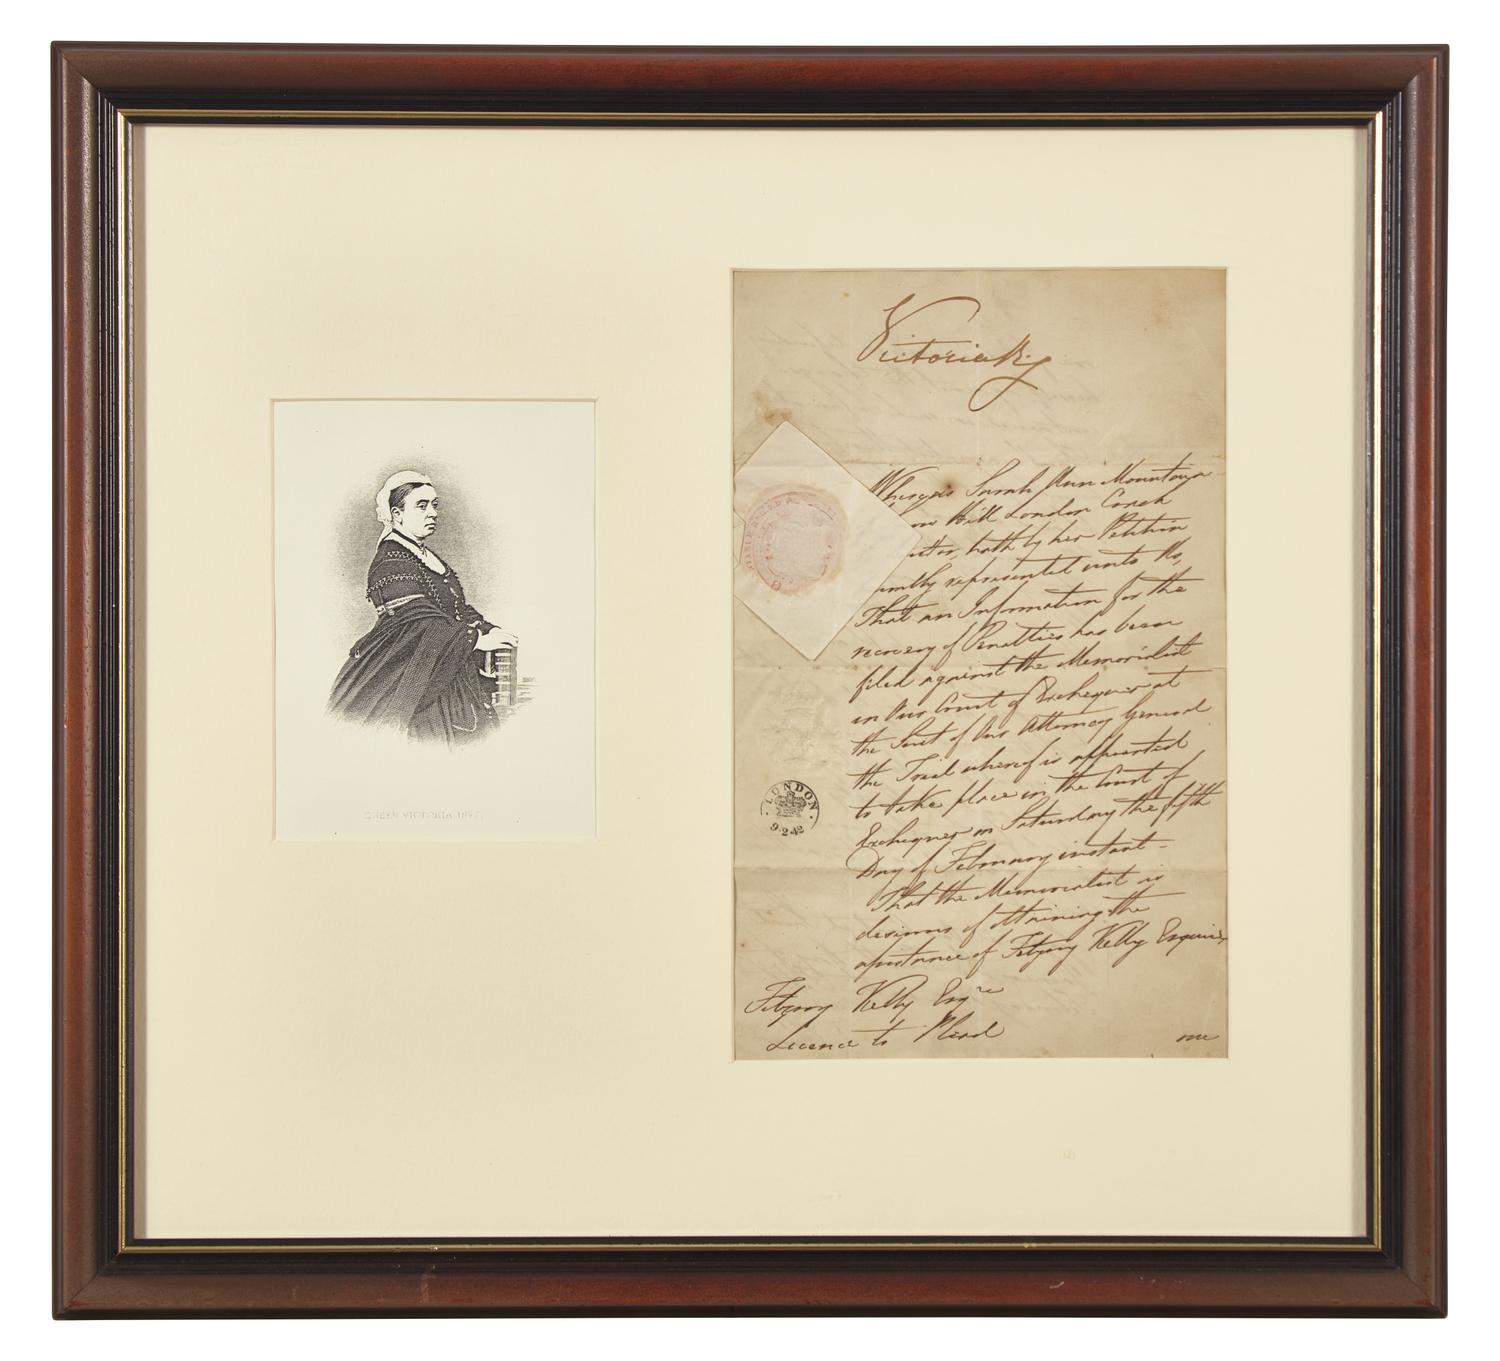 Victoria Rg
Whereas Sarah Ann Mountain
Hill London Coach
hath by her Petition
represented unto Us,
That an Information for the
recovery of Penalties has been
filed against the Memorialist
in Our Court of Exchequer at
the Suit of Our Attorney General
the Trial whereof is appointed
to take place in the Court of
Exchequer on Saturday the fifth
Day of February instant -
That the Memorialist is
desirous of attaining the
assistance of Fitzroy Kelly Esquire
LONDON
9·2·42
Fitzroy Kelly Esqre
Licence to Plead
one
QUEEN VICTORIA